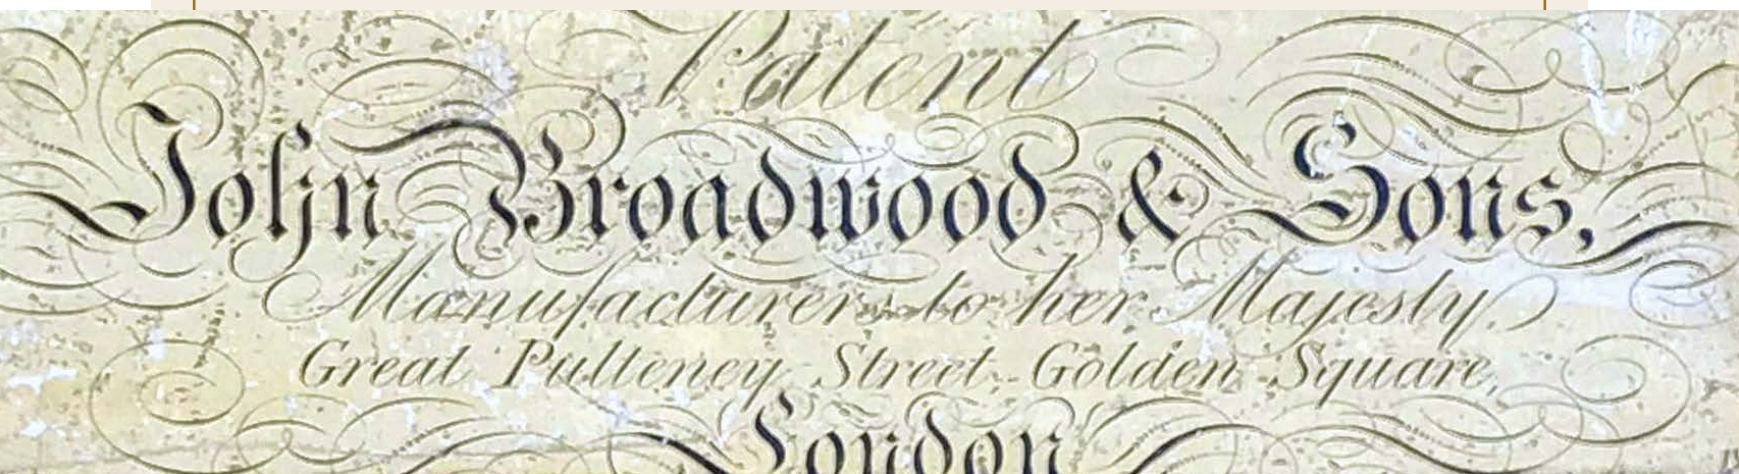 Patent
John Broadwood & Sons,
Manufacturers to her Majesty,
Great Pulteney Street, Golden Square,
London